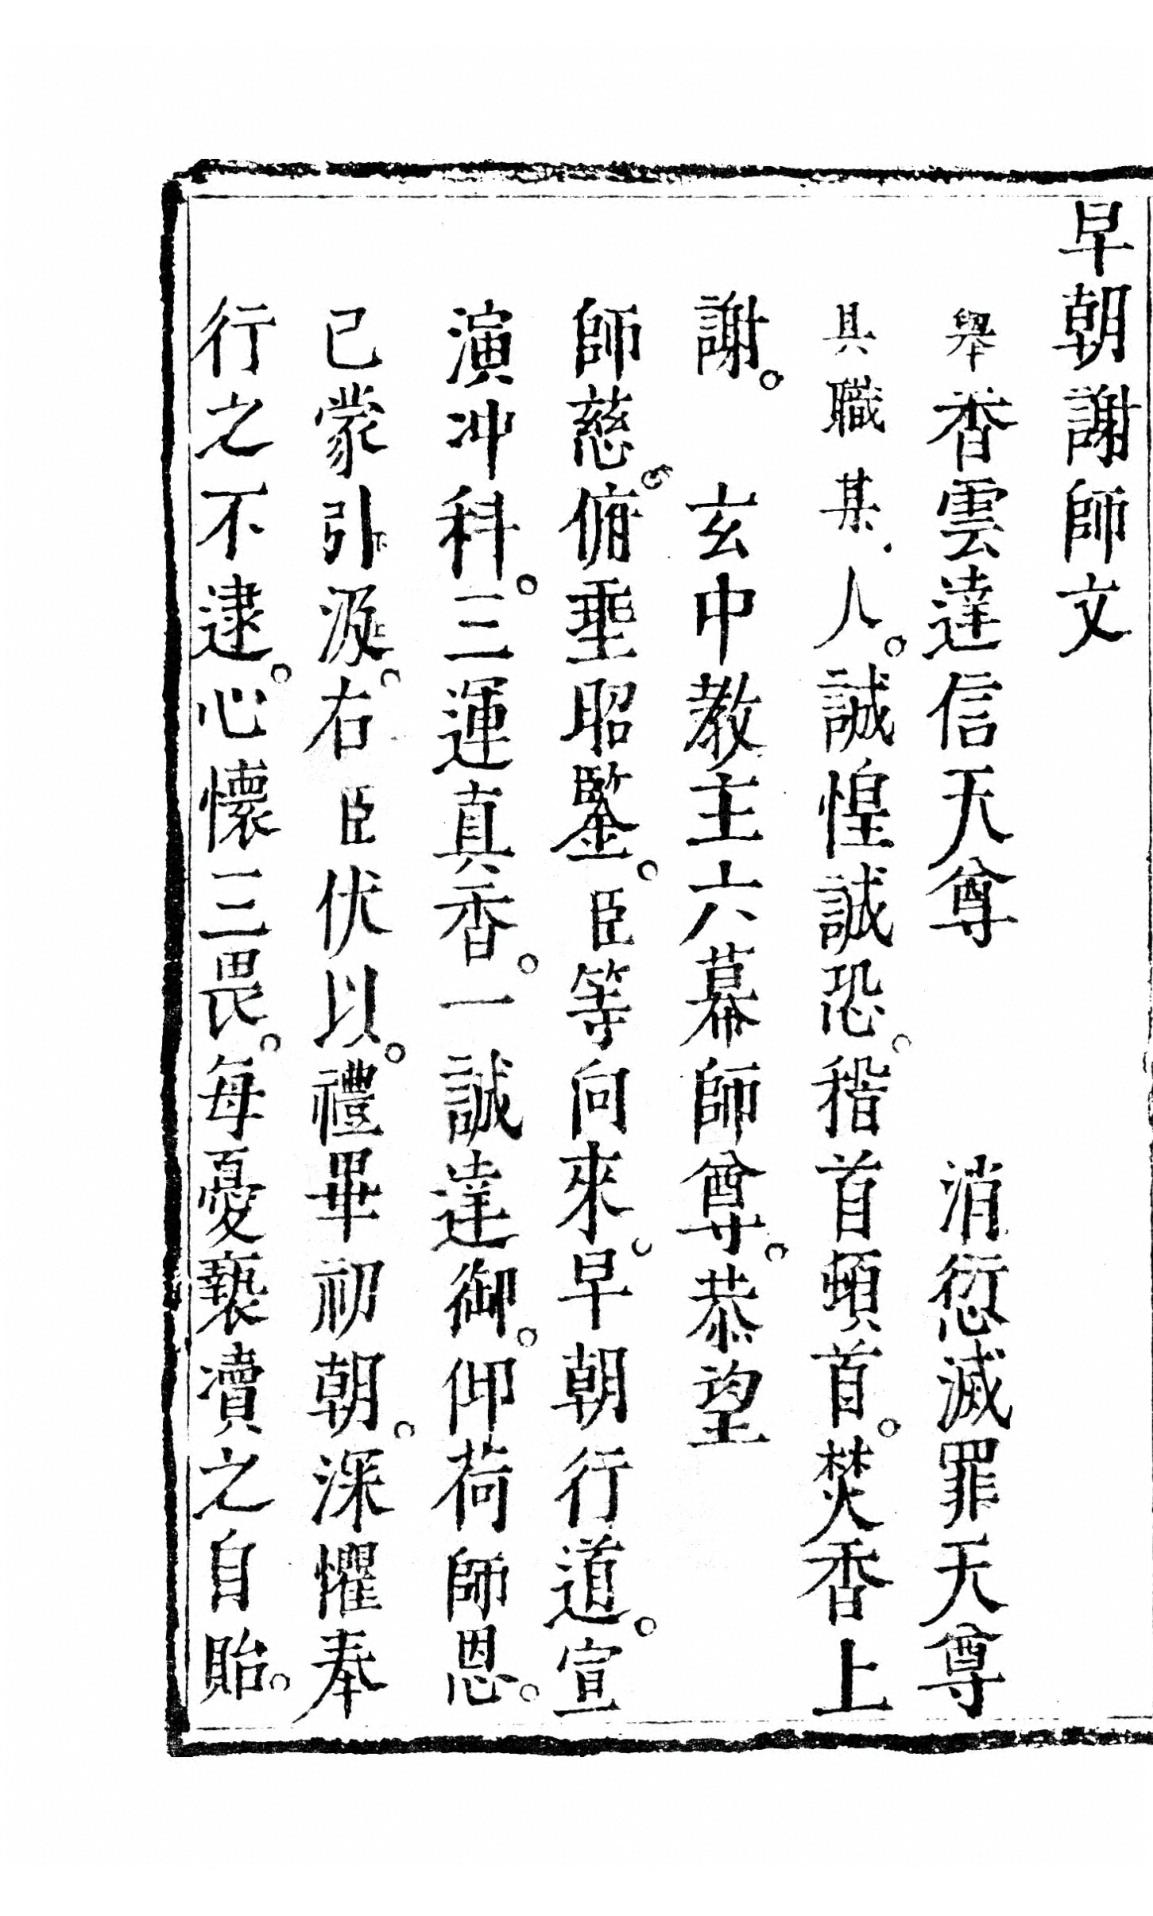 早朝謝師文
舉香雲達信天尊　消愆滅罪天尊
具職某人。誠惶誠恐。稽首頓首。焚香上
謝。　玄中教主六幕師尊。恭望
師慈。俯垂昭鑒。臣等向來。早朝行道。宣
演冲科。三運真香。一誠達御。仰荷師恩。
已蒙引汲。右臣伏以。禮畢初朝。深懼奉
行之不逮。心懷三畏。每憂褻瀆之自貽。